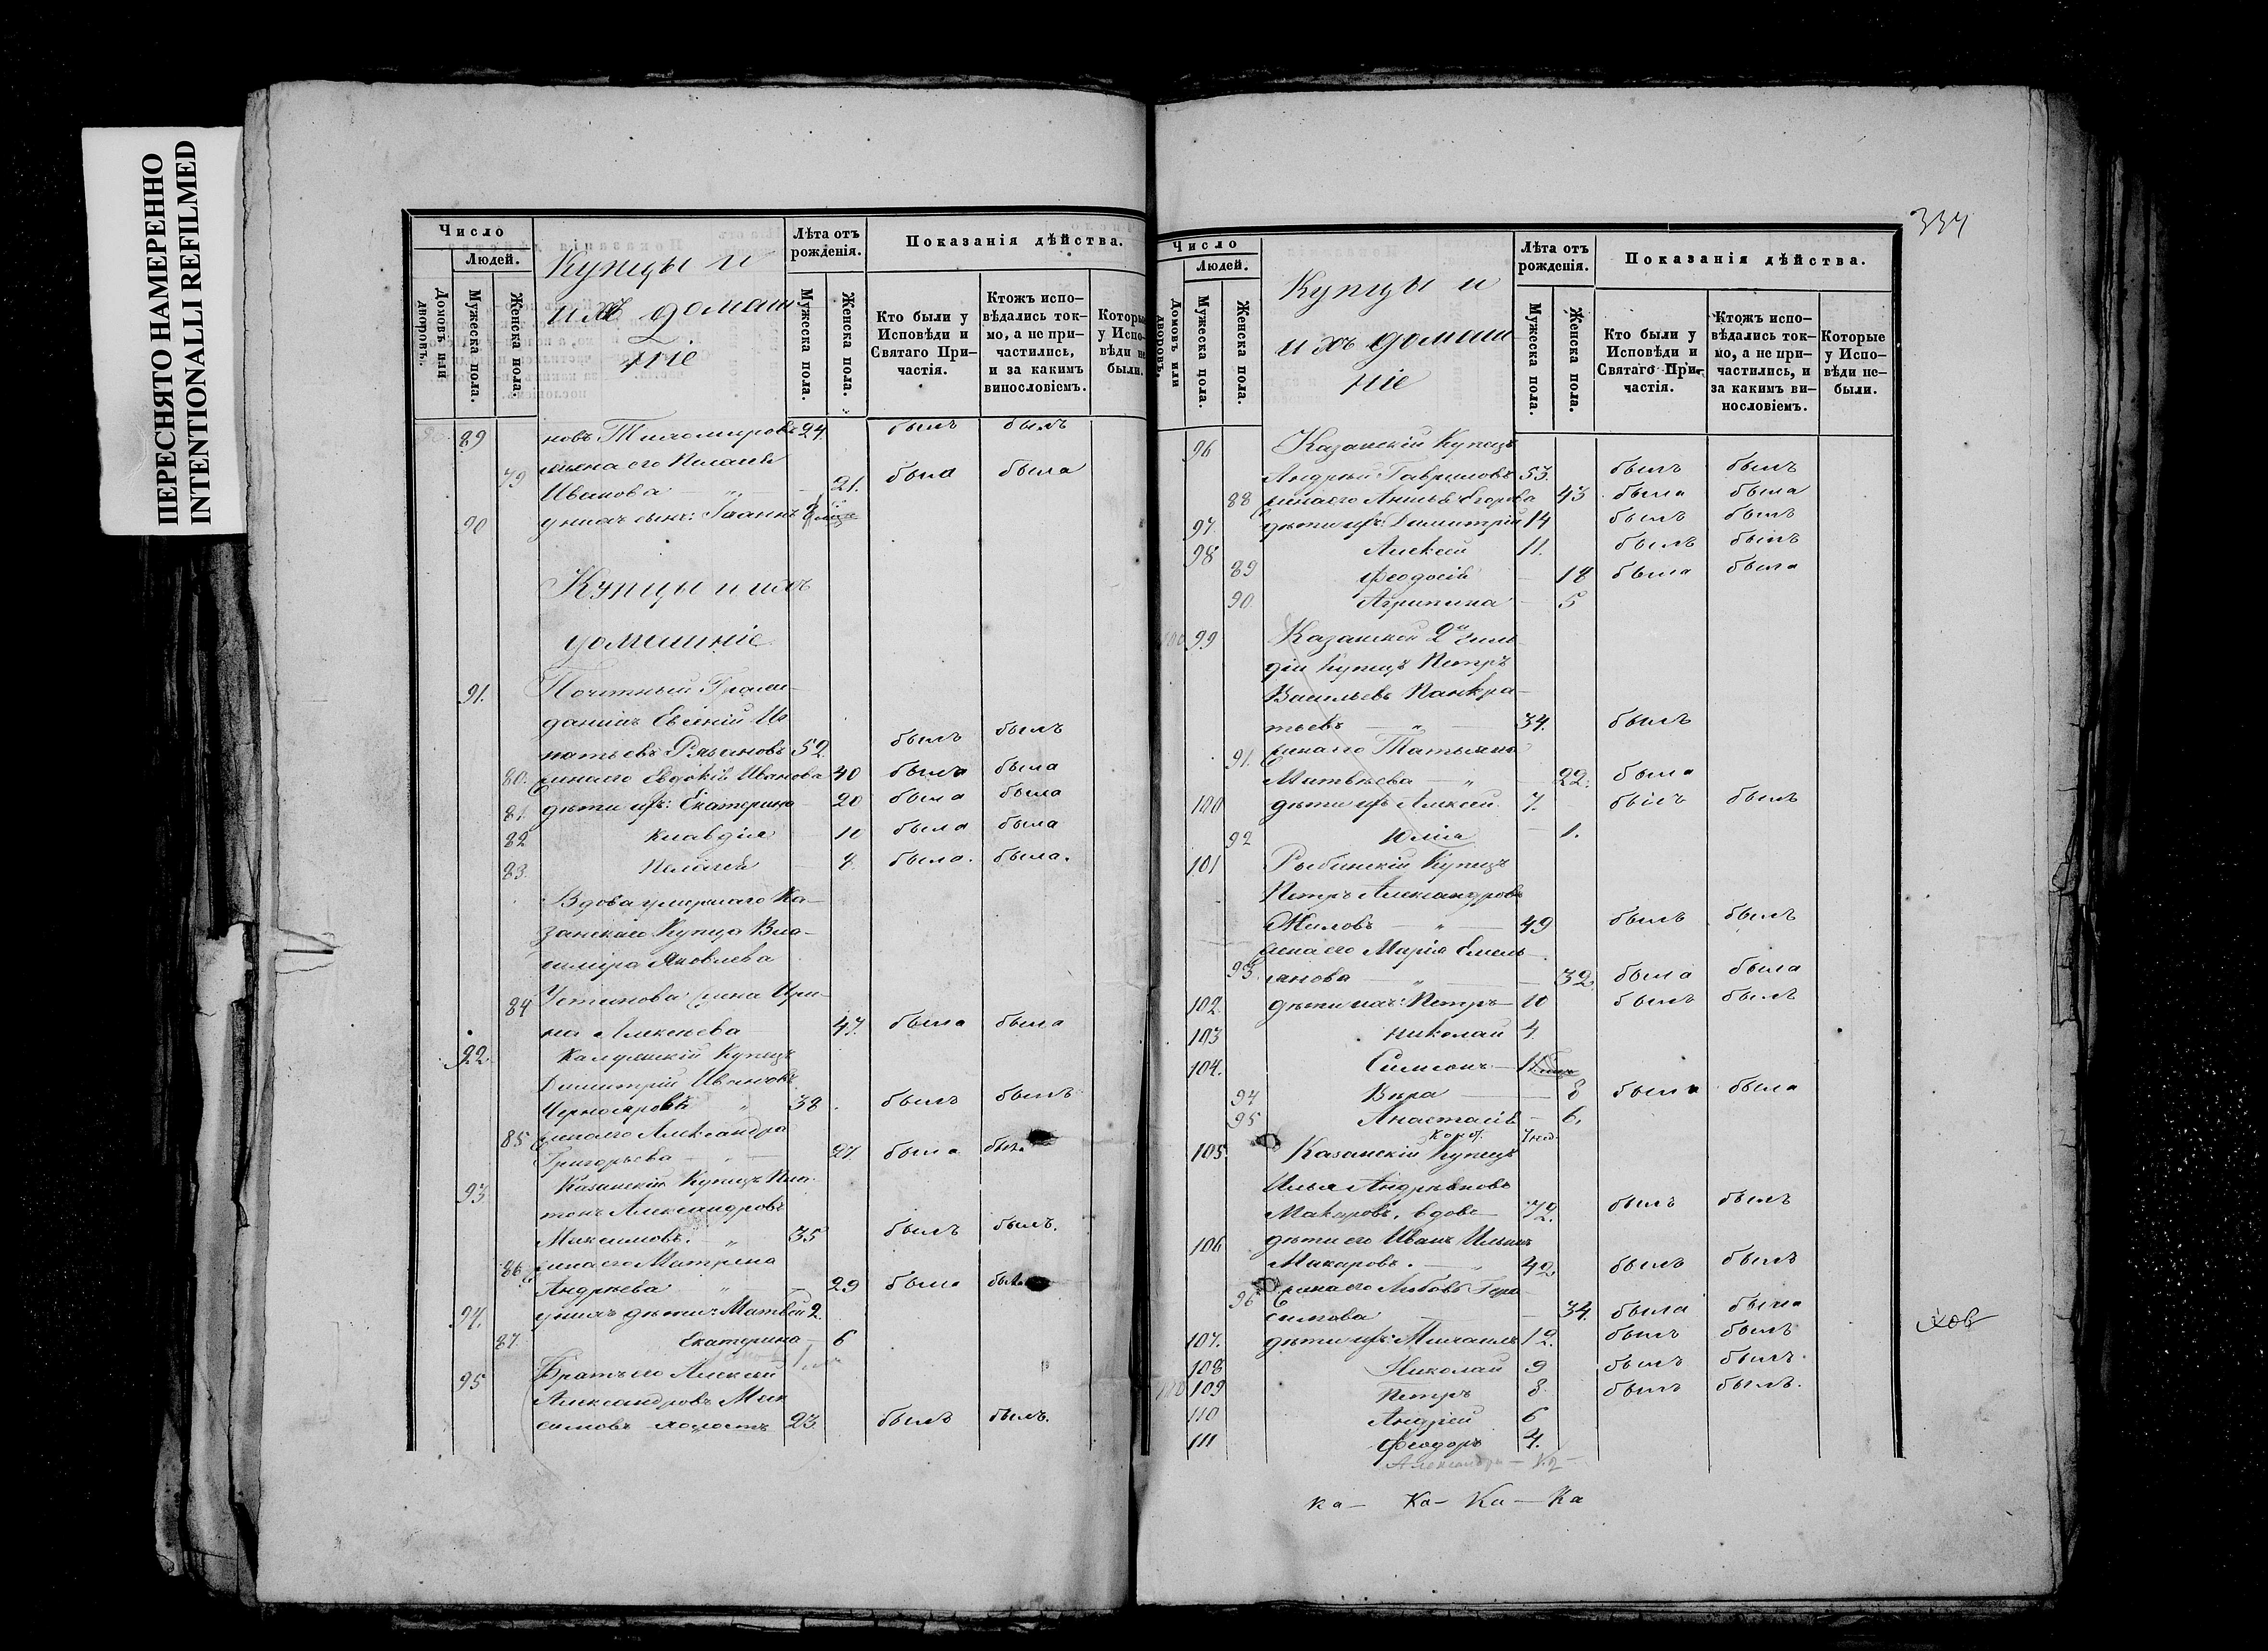 ПЕРЕСНЯТО НАМЕРЕННО
INTENTIONALLI REFILMED
Число
Людей.
Домовъ или дворовъ.
Мужеска пола.
Женска пола.
Купцы и
ихъ домаш
ніе
Лѣта отъ рожденія.
Мужеска пола.
Женска пола.
Показанія дѣйства.
Кто были у Исповѣди и Святаго При-частія.
Ктожъ испо-вѣдались ток-мо, а не при-частились, и за какимъ винословіемъ.
Которые у Испо-вѣди не были.
89 новъ Тихомировъ 24 былъ былъ
79 жена его Пелагея
Иванова 21. была была
90 у нихъ сынъ: Іоаннъ
Купцы и ихъ
домашніе
91. Почтный Граж-
данинъ Евгеній Иг
натьевъ Рязановъ 52 былъ былъ
80. жена его Евдокія Иванова 40 была была
81 дѣти ихъ: Екатерина 20 была была
82 Клавдія 10 была была
83. Пелагея 8 была. была.
Вдова умершаго Ка-
занскаго Купца Вла-
диміра Яковлева
84 Устинова жена Ири-
на Алексеева 47. была была
92. Купецъ
Димитрій Ивановъ
Чернояровъ 38 былъ былъ
85 жена его Александра
Григорьева 27. была была
93 Казанскій Купецъ Пла-
тонъ Александровъ
Максимовъ. 35 былъ былъ.
86 жена его Матрена
Андреева 29 была была
94. у нихъ дѣти: Матвей 2.
87. Екатерина 6
95 Братъ его Алексей
Александровъ Мак
симовъ холостъ 23. былъ былъ.
334
Число
Людей.
Домовъ или дворовъ.
Мужеска пола.
Женска пола.
Купцы и
ихъ домаш
ніе
Лѣта отъ рожденія.
Мужеска пола.
Женска пола.
Показанія дѣйства.
Кто были у Исповѣди и Святаго При-частія.
Ктожъ испо-вѣдались ток-мо, а не при-частились, и за какимъ ви-нословіемъ.
Которые у Испо-вѣди не-были.
96 Казанскій Купецъ
Андрей Гавриловъ 53. былъ былъ
88 жена его Анна Егорова 43 была была
97. дѣти ихъ: Димитрій 14 былъ былъ
98 Алексей 11. былъ былъ
89 Феодосія 18 была была
90. Агрипина 5
99 Казанской 2й гиль
діи Купецъ Петръ
Васильевъ Панкра-
тьевъ 34. былъ
91. жена его Татьяна
Матвеева 22. была
100 дѣти ихъ Алексей 7. былъ былъ
92 Юлія 1.
101 Рыбинскій Купецъ
Петръ Александровъ
Жиловъ 49 былъ былъ
93. жена его Марія Емель-
янова 32. была была
102. дѣти ихъ: Петръ 10 былъ былъ
103 Николай 4.
104. Симеонъ
94 Вѣра 8 была была
95 Анастасія 6.
105. Казанскій Купецъ
Илья Андреяновъ
Макаровъ, вдовъ 72. былъ былъ
106 дѣти его Иванъ Ильинъ
Макаровъ. 42 былъ былъ
96 жена его Любовь Гера-
симова 34. была была
107. дѣти ихъ: Михаилъ 12. былъ былъ
108 Николай 9 былъ былъ.
109 Петръ 8. былъ былъ.
110 Андрей 6
111 Феодоръ 4.
Александръ
ка— Ка— Ка— Ка